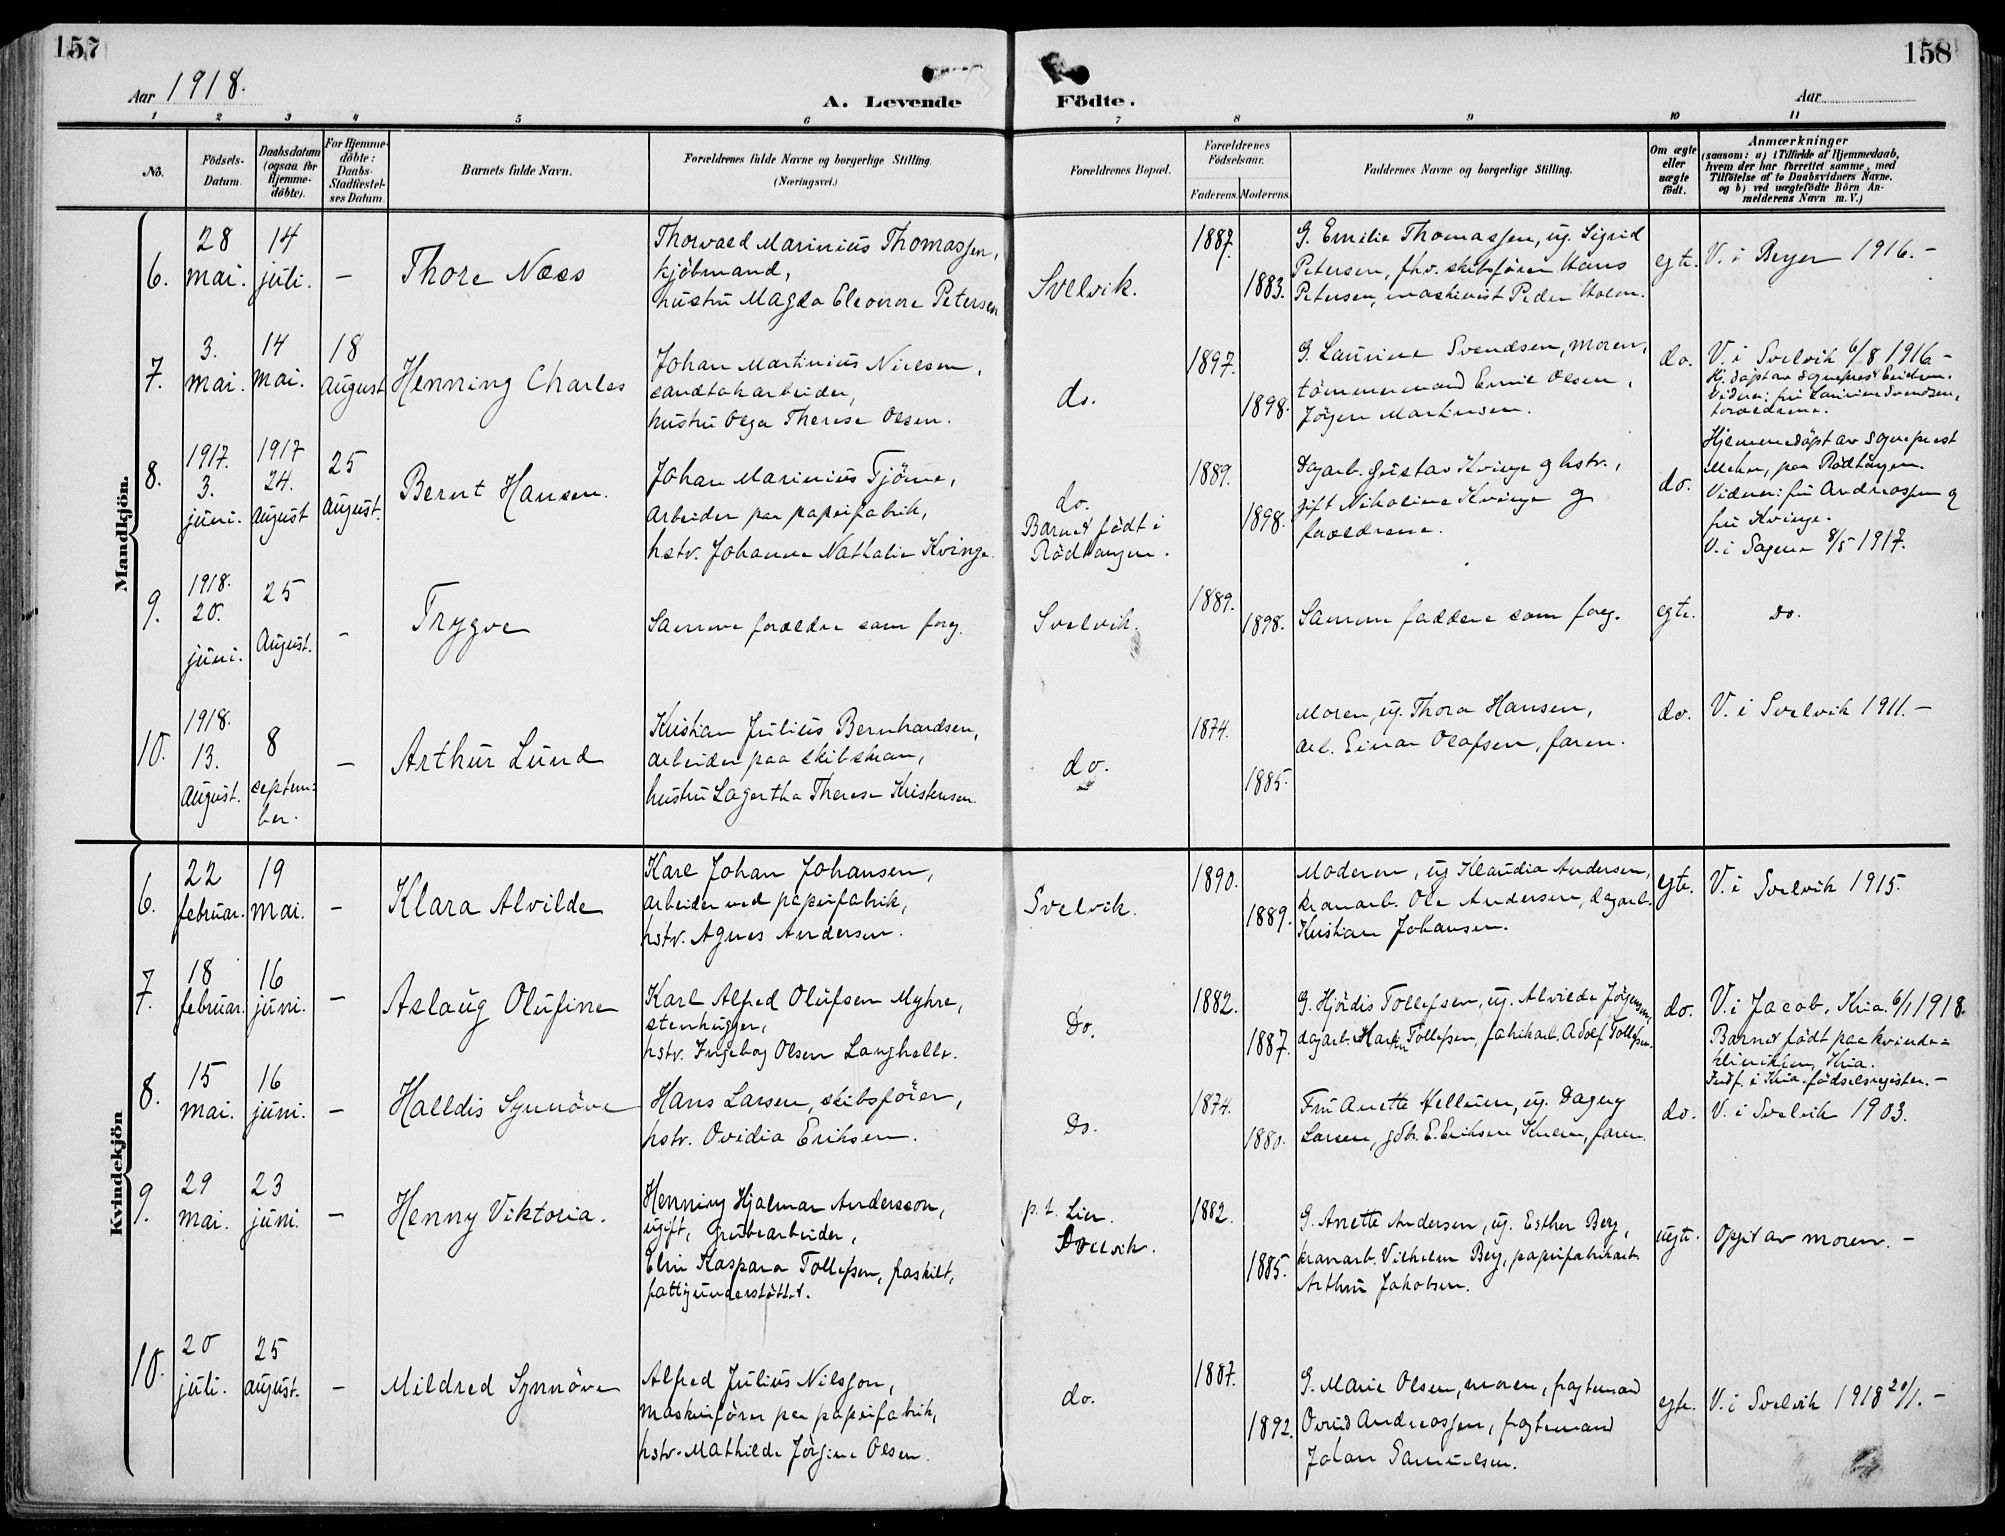 157
158
Aar 1918.
A. Levende Födte.
Aar
1 2 3 4 5 6 7 8 9 10 11
No.
Födsels-Datum.
Daabsdatum (ogsaa for Hjemme-döbte).
For Hjemme-döbte: Daabs-Stadfæstel-ses Datum.
Barnets fulde Navn.
Forældrenes fulde Navne og borgerlige Stilling.
(Næringsvei.)
Forældrenes Bopæl.
Forældrenes Födselsaar.
Faderens. Moderens.
Faddernes Navne og borgerlige Stilling.
Om ægte eller uægte födt.
Anmærkninger
(saasom: a) i Tilfælde af Hjemmedaab, hvem der har forrettet samme, med Tilföielse af to Daabsvidners Navne, og b) ved uægtefödte Börn Anmelderens Navn m. V.)
Mandkjön.
6.
28 mai.
14 juli.
—
Thore Næss
Thorvald Marinius Thomassen,
kjöbmand,
hustru Magda Eleonore Petersen
Svelvik.
1887.
1883.
G. Emilie Thomassen, ug. Sigrid
Petersen, fhv. skibsförer Hans
Petersen, maskinist Peder Holm.
egte.
V. i Beyer 1916. –
7.
3. mai.
14 mai.
18 august
Henning Charles
Johan Martinius Nielsen,
sandtakarbeider,
hustru Olga Therese Olsen.
do.
1897.
1898.
G. Laurine Svendsen, moren,
tömmermand Emil Olsen,
Jörgen Martinsen.
do.
V. i Svelvik 6/8 1916 –
Hj. döpt av sogneprest
Vidner: fru Laurine Svendsen,
forældrene.
8.
1917. 3. juni.
1917 24. august
25 august.
Bernt Hansen.
Johan Marinius Tjöme,
arbeider paa papirfabrik,
hstr. Johanne Nathalie Kvinge.
do.
Barnet födt i
Rödtangen.
1889.
1898.
Dagarb. Gustav Kvinge og hstr.,
gift Nikoline Kvinge og
forældrene.
do.
Hjemmedöpt av sogneprest
paa Rödtangen.
Vidner: fru Andreassen og
fru Kvinge.
V. i Sagene 8/5 1917.
9.
1918. 20. juni.
25 August.
–
Trygve
Samme forældre som foreg.
Svelvik.
1889.
1898.
Samme faddere som foreg.
egte.
do.
10.
1918. 13. August.
8 septem-ber.
–
Arthur Lund
Kristian Julius Bernhardsen,
arbeider paa skibskran,
hustru Lagertha Therese Kristensen.
do.
1874.
1885.
Moren, ug. Thora Hansen,
arb. Einar Olafsen, faren.
do.
V. i Svelvik 1911. –
Kvindekjön
6.
22 februar.
19 mai.
–
Klara Alvilde
Karl Johan Johansen,
arbeider ved papirfabrik,
hstr. Agnes Andersen.
Svelvik.
1890.
1889.
Moderen, ug Klaudia Andersen,
kranarb. Ole Andersen, dagarb.
Kristian Johansen.
egte.
V. i Svelvik 1915.
7.
18 februar.
16 juni.
–
Aslaug Olufine
Karl Alfred Olufsen Myhre,
stenhugger,
hstr. Ingeborg Olsen Langhelle.
Do.
1882.
1887.
G. Hjördis Tollefsen, ug. Alvilde Jörgensen,
dagarb. Martin Tollefsen, fabrikarb. Adolf Tollefsen.
do.
V. i Jacob, Kria. 6/1 1918.
Barnet födt paa kvinde-
klinikken, Kria.
Indf. i Kria. födselsregister. –
8.
15 mai.
16 juni.
–
Halldis Synnöve
Hans Larsen, skibsförer,
hstr. Ovidia Eriksen.
Do.
1874.
1880.
Fru Anette Hellum, ug. Dagny
Larsen, gdbr. E. Eriksen faren.
do.
V. i Svelvik 1903.
9.
29 mai.
23 juni.
–
Henny Viktoria.
Henning Hjalmar Andersson,
ugift, grubearbeider,
Elin Kaspara Tollefsen, fraskilt,
fattigunderstöttet.
p. t. Lier.
Svelvik.
1882.
1885.
G. Anette Andersen, ug. Esther Berg,
kranarb. Vilhelm Berg, papirfabrikarb.
Arthur Jakobsen.
uegte.
Opgit av moren. –
10.
20 juli.
25 august.
–
Mildred Synnöve
Alfred Julius Nilsson,
maskinförer paa papirfabrik,
hstr. Mathilde Jörgine Olsen.
do.
1887.
1892.
G. Marie Olsen, moren, fragtemand
Ovind Andreassen, fragtemand
Johan Samuelsen.
egte.
V. i Svelvik 1918 20/1. –